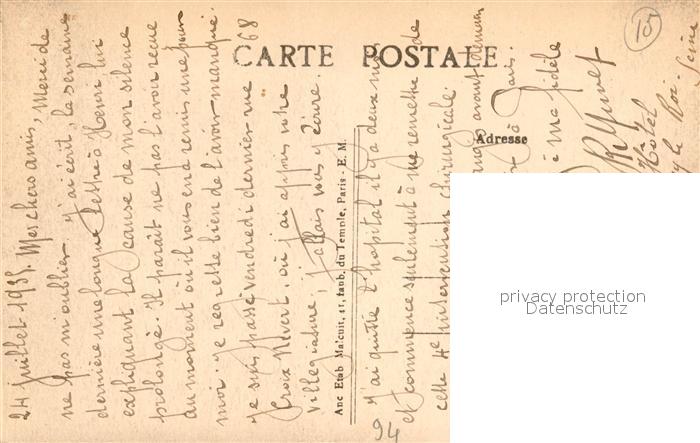 CARTE POSTALE
Adresse
24 juillet 1935. Mes chers amis, Merci de
ne pas m'oublier. J'ai écrit, la semaine
dernière une longue lettre à Henri lui
expliquant la cause de mon silence
prolongé. Il paraît ne pas l'avoir reçue
au moment où il vous en a remis une pour
moi. Je regrette bien de l'avoir manqué.
Je suis passé vendredi dernier rue
Croix Nivert, 68
où j'ai appris votre
villégiature, j'allais vous y écrire.
Anc Etab Malcuit, 41, faub. du Temple, Paris - E. M.
J'ai quitté l'hôpital il y a deux
et commence seulement à me remettre de
cette 4e intervention chirurgicale.
avant demain
à Paris.
ma fidèle
Hôtel
le Roi. Seine
94
105
privacy protection
Datenschutz